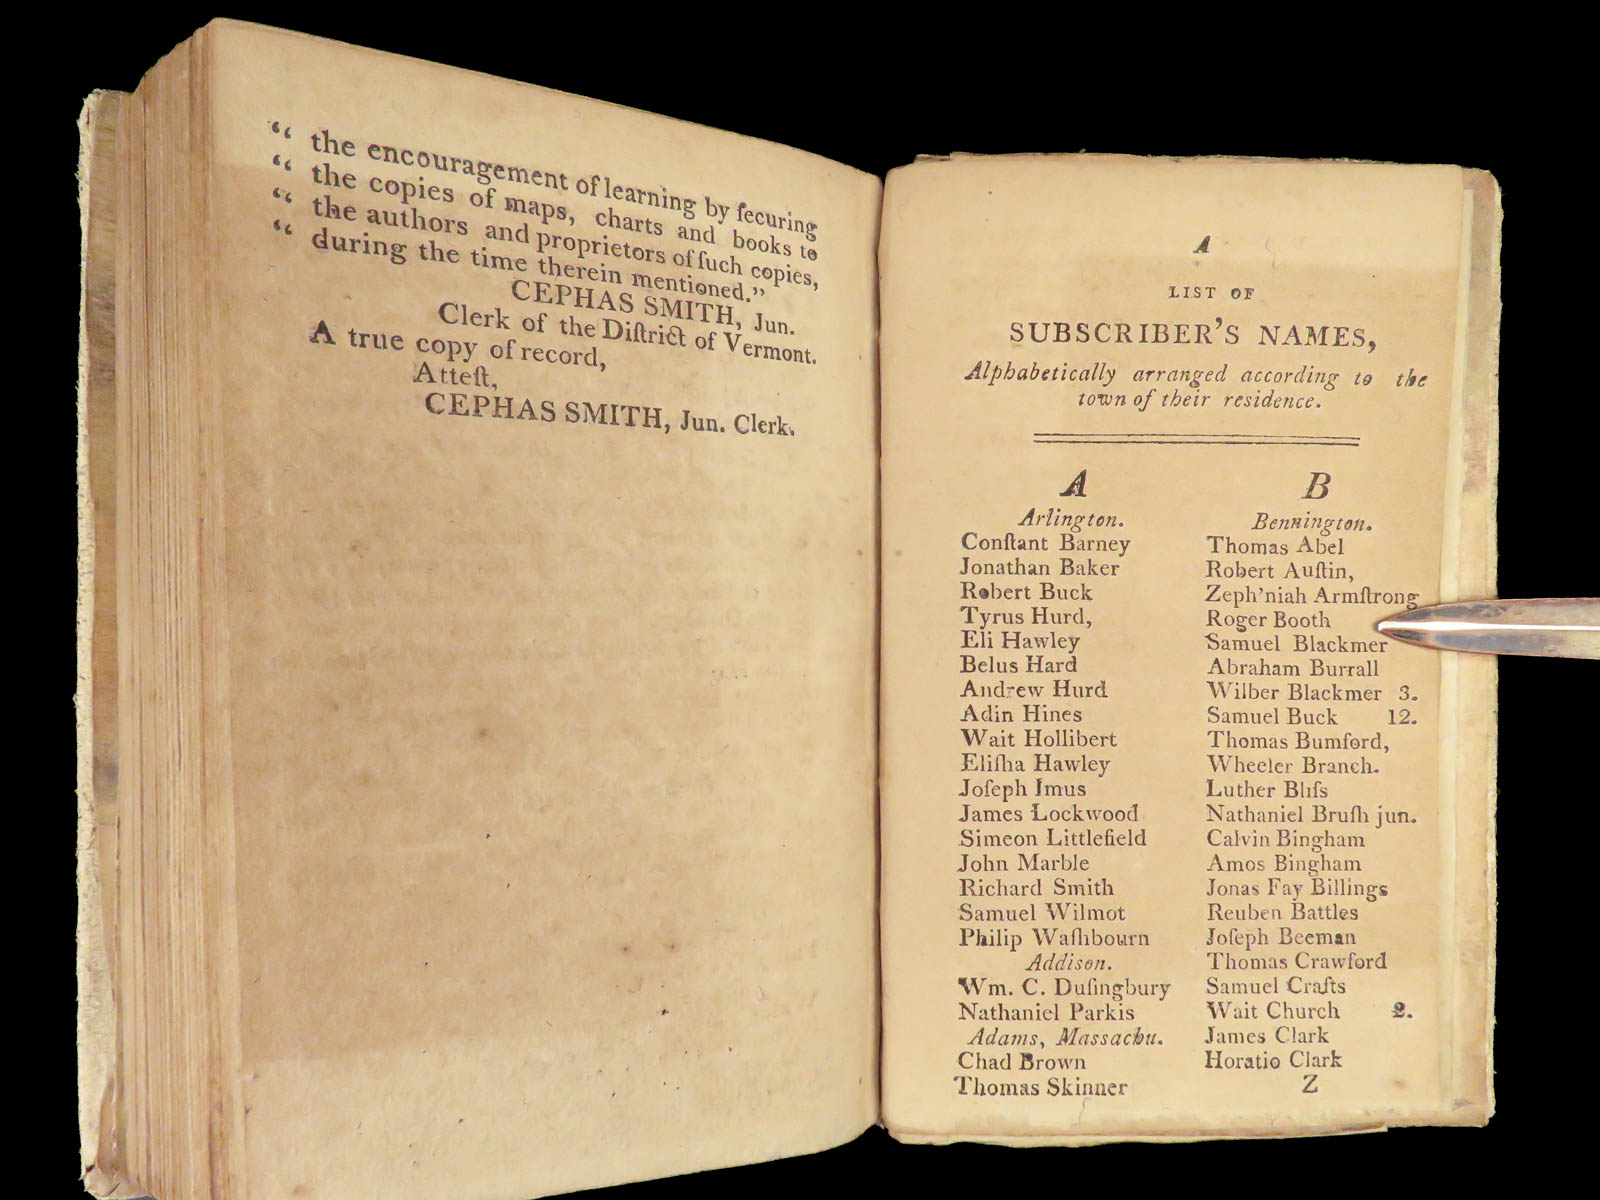 “ the encouragement of learning by ſecuring
“ the copies of maps, charts and books to
“ the authors and proprietors of ſuch copies,
“ during the time therein mentioned.”
CEPHAS SMITH, Jun.
Clerk of the Diſtrict of Vermont.
A true copy of record,
Atteſt,
CEPHAS SMITH, Jun. Clerk.
A
LIST OF
SUBSCRIBER’S NAMES,
Alphabetically arranged according to the
town of their residence.
A
Arlington.
Conſtant Barney
Jonathan Baker
Robert Buck
Tyrus Hurd,
Eli Hawley
Belus Hard
Andrew Hurd
Adin Hines
Wait Hollibert
Eliſha Hawley
Joſeph Imus
James Lockwood
Simeon Littlefield
John Marble
Richard Smith
Samuel Wilmot
Philip Waſhbourn
Addison.
Wm. C. Duſingbury
Nathaniel Parkis
Adams, Massachu.
Chad Brown
Thomas Skinner
B
Bennington.
Thomas Abel
Robert Auſtin,
Zeph’niah Armſtrong
Roger Booth
Samuel Blackmer
Abraham Burrall
Wilber Blackmer 3.
Samuel Buck 12.
Thomas Bumford,
Wheeler Branch.
Luther Bliſs
Nathaniel Bruſh jun.
Calvin Bingham
Amos Bingham
Jonas Fay Billings
Reuben Battles
Joſeph Beeman
Thomas Crawford
Samuel Crafts
Wait Church 2.
James Clark
Horatio Clark
Z